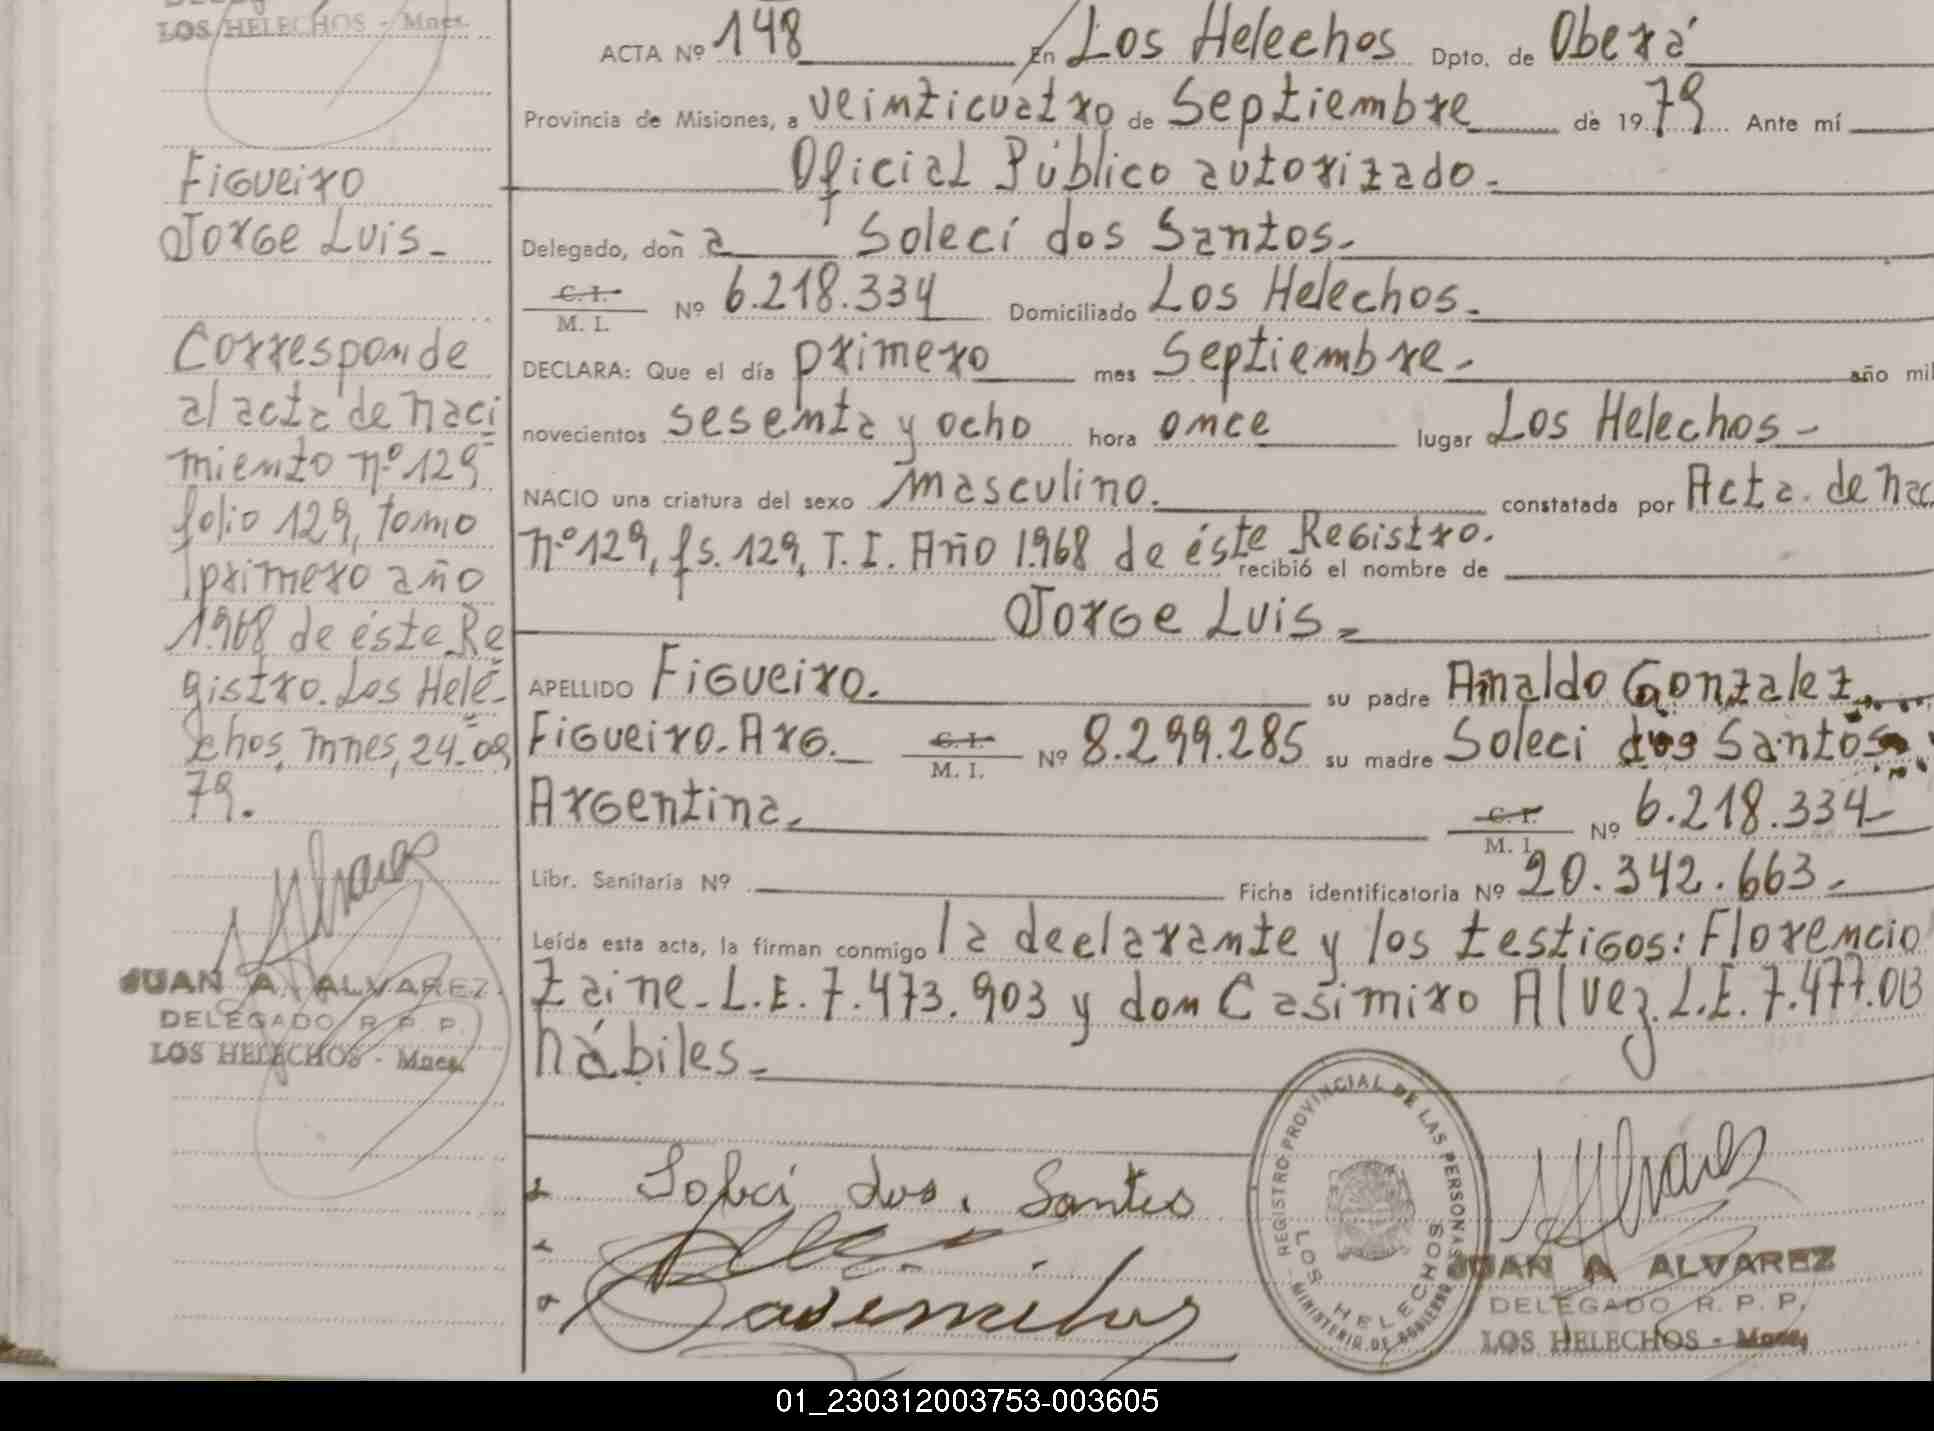 LOS HELECHOS - Mnes.
Figueiro
Jorge Luis.-
Corresponde
al acta de naci
miento nº 129
folio 129, tomo
primero año
1.968 de éste Re
gistro. Los Hele-
chos, mnes, 24-09
79.
JUAN A. ALVAREZ
DELEGADO R. P. P.
LOS HELECHOS - Mnes.
ACTA Nº 148 En Los Helechos Dpto. de Oberá
Provincia de Misiones, a veinticuatro de Septiembre de 1979 Ante mí
Oficial Público autorizado.-
Delegado, doña Soleci dos Santos.-
C. I.
M. I. Nº 6.218.334 Domiciliado Los Helechos.-
DECLARA: Que el día primero mes Septiembre.- año mil
novecientos sesenta y ocho hora once lugar Los Helechos-
NACIO una criatura del sexo masculino. constatada por Acta. de nac
nº 129, fs. 129, T. I. Año 1.968 de éste Registro.
recibió el nombre de
Jorge Luis.-
APELLIDO Figueiro. su padre Arnaldo Gonzalez
Figueiro-Arg. C. I. M. I. Nº 8.299.285 su madre Soleci dos Santos
Argentina.- C. I. M. I. Nº 6.218.334-
Libr. Sanitaria Nº Ficha identificatoria Nº 20.342.663.-
Leída esta acta, la firman conmigo la declarante y los testigos: Florencio
Zaine-L.E. 7.473.903 y don Casimiro Alvez. L.E. 7.477.013
hábiles.-
Soleci dos Santos
REGISTRO PROVINCIAL DE LAS PERSONAS
LOS HELECHOS
MINISTERIO DE GOBIERNO
JUAN A ALVAREZ
DELEGADO R. P. P.
LOS HELECHOS - Mnes
01_230312003753-003605